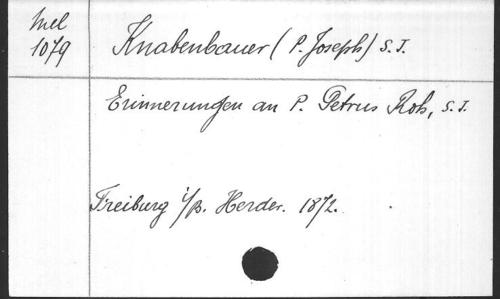 Mel
1079
Knabenbauer (P. Joseph) S. J.
Erinnerungen an P. Petrus Roh, S. J.
Freiburg i/B. Herder. 1872.